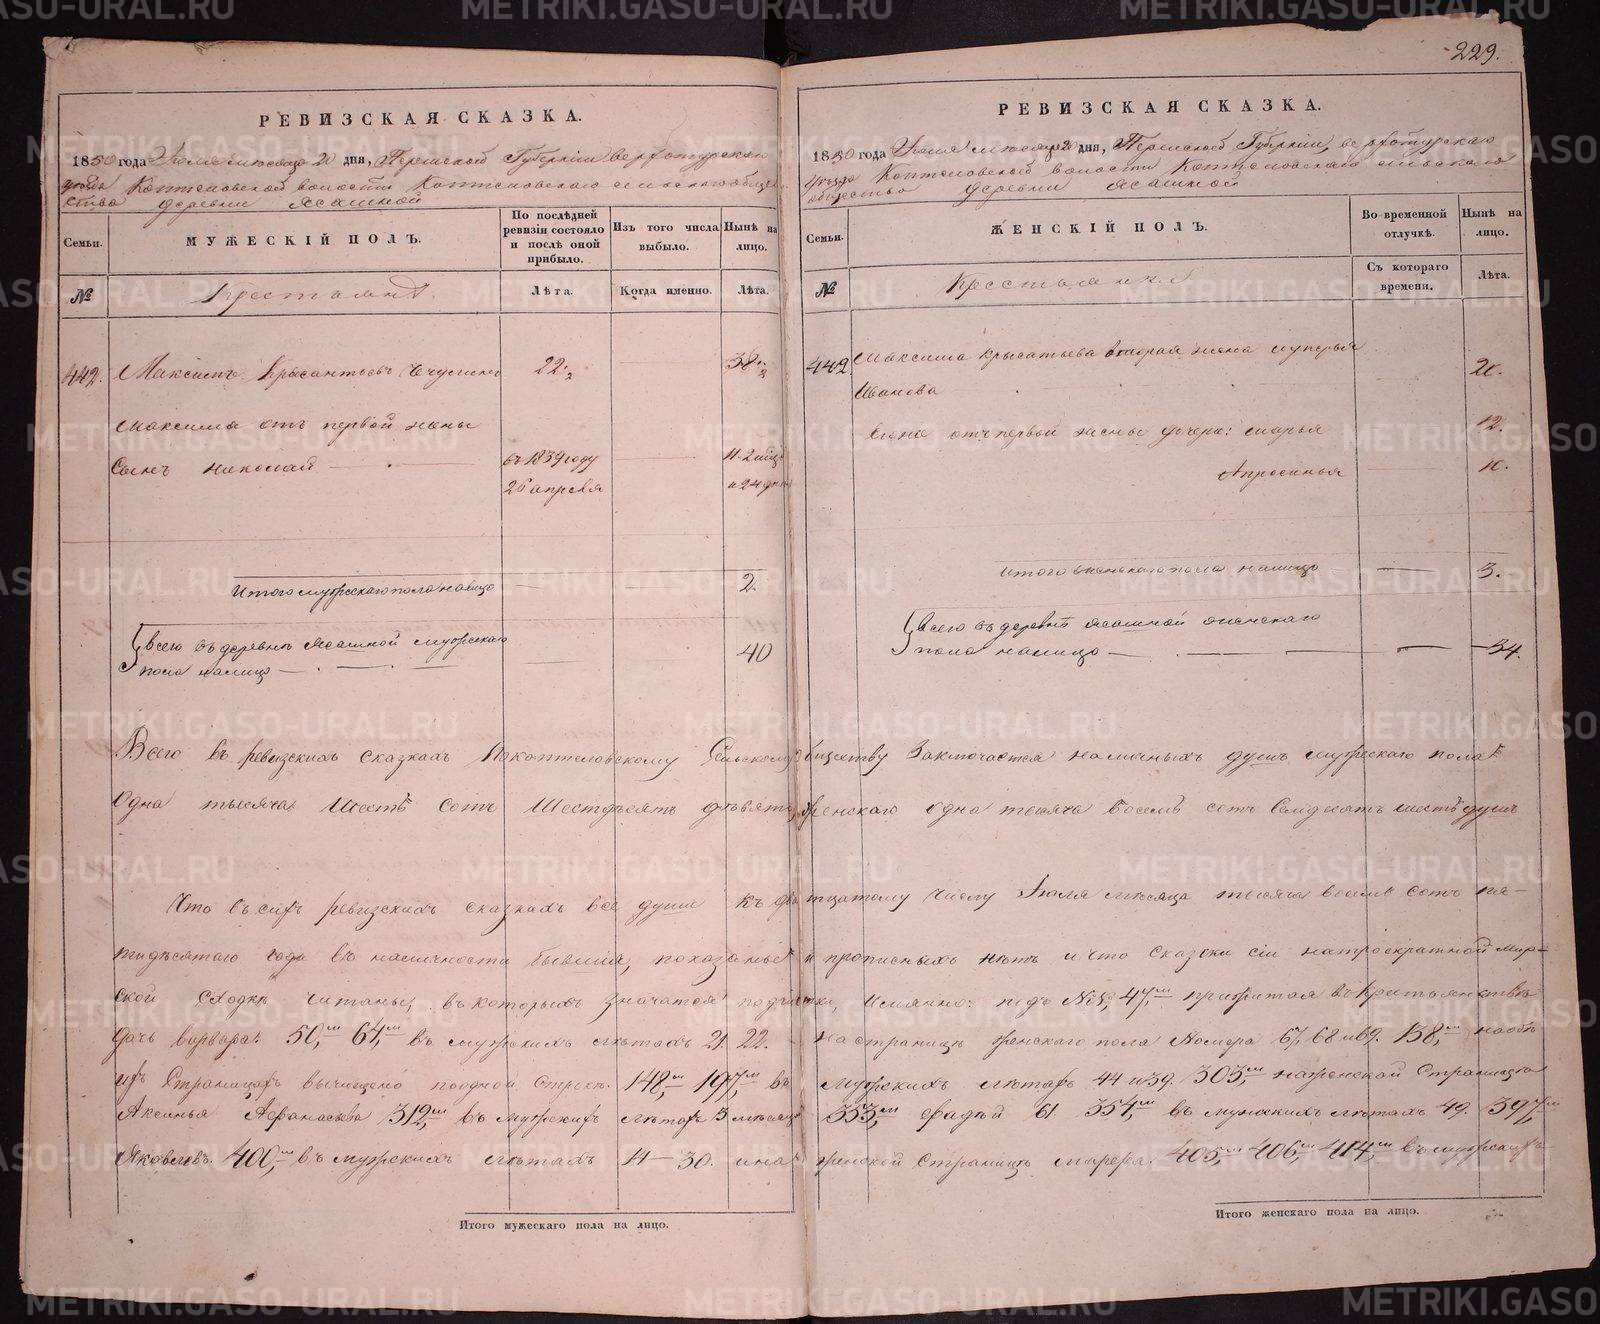 229.
РЕВИЗСКАЯ СКАЗКА.
1850 года Июля месяца 20 дня, Пермской Губернiи верхотурскаго
уезда Коптеловской волости Коптеловскаго сельскаго общес
ства деревни Ясашной
Семьи.
МУЖЕСКІЙ ПОЛЪ.
По послѣдней ревизіи состояло и послѣ оной прибыло.
Изъ того числа выбыло.
Нынѣ на лицо.
№
Крестьяне
Лѣта.
Когда именно.
Лѣта.
442. Максимъ Крысантьевъ 22 1/2 38 1/2
Максима отъ первой жены
Сынъ Николай въ 1839 году 11. 2 мѣс
26 апреля и 24 дня
Итого мужескаго пола налицо 2.
Всего въ деревне Ясашной мужескаго
пола налицо 40
РЕВИЗСКАЯ СКАЗКА.
1850 года Июля месяца 20 дня, Пермской Губернiи, верхотурскаго
уезда Коптеловской волости Коптеловскаго сельскаго
общества деревни Ясашной
Семьи.
ЖЕНСКІЙ ПОЛЪ.
Во временной отлучкѣ.
Нынѣ на лицо.
№
Крестьянки
Съ котораго времени.
Лѣта.
442 Максима Крысантьева вторая жена Лукерья
Иванова
отъ первой жены дочери: Марья 12.
Апросинья
Итого женскаго пола налицо 3.
Всего въ деревнѣ Ясашной женскаго
пола налицо 54.
Всего въ ревизскихъ сказкахъ По коптеловскому Сельскому обществу Заключается наличныхъ душъ мужескаго пола
Одна тысяча Шесть сотъ Шестдесять девять, женскаго одна тысяча восемь сотъ Семдесятъ шесть душъ
Что въ сихъ ревизскихъ сказкахъ все души къ двадцатому числу Июля месяца тысяча восемь сотъ пя-
тидесятаго года въ наличности бывшiя, показаны и прописныхъ нетъ и что сказки сiи на троекратной мир-
ской сходке читаны, въ которыхъ значатся подчистки, Имянно: подъ № 47, въ крестьянстве
Варвара: 50, 64, въ мужскихъ летахъ 21. 22. на странице женскаго пола Номера 67, 68 и 69. 138,
Страницахъ вычищено по одной строке. 148, 197, въ мужскихъ летахъ 44 и 39. 303, на женской странице
Аксинья Афанасьева 312, въ мужскихъ летахъ 3 месяца 353, 61. 354, въ мужскихъ летахъ 49. 397,
Яковлевъ. 400, въ мужскихъ летахъ 11 — 30. и на женской странице 405, 406, 414, въ мужскихъ
Итого мужескаго пола на лицо.
Итого женскаго пола на лицо.
METRIKI.GASO-URAL.RU